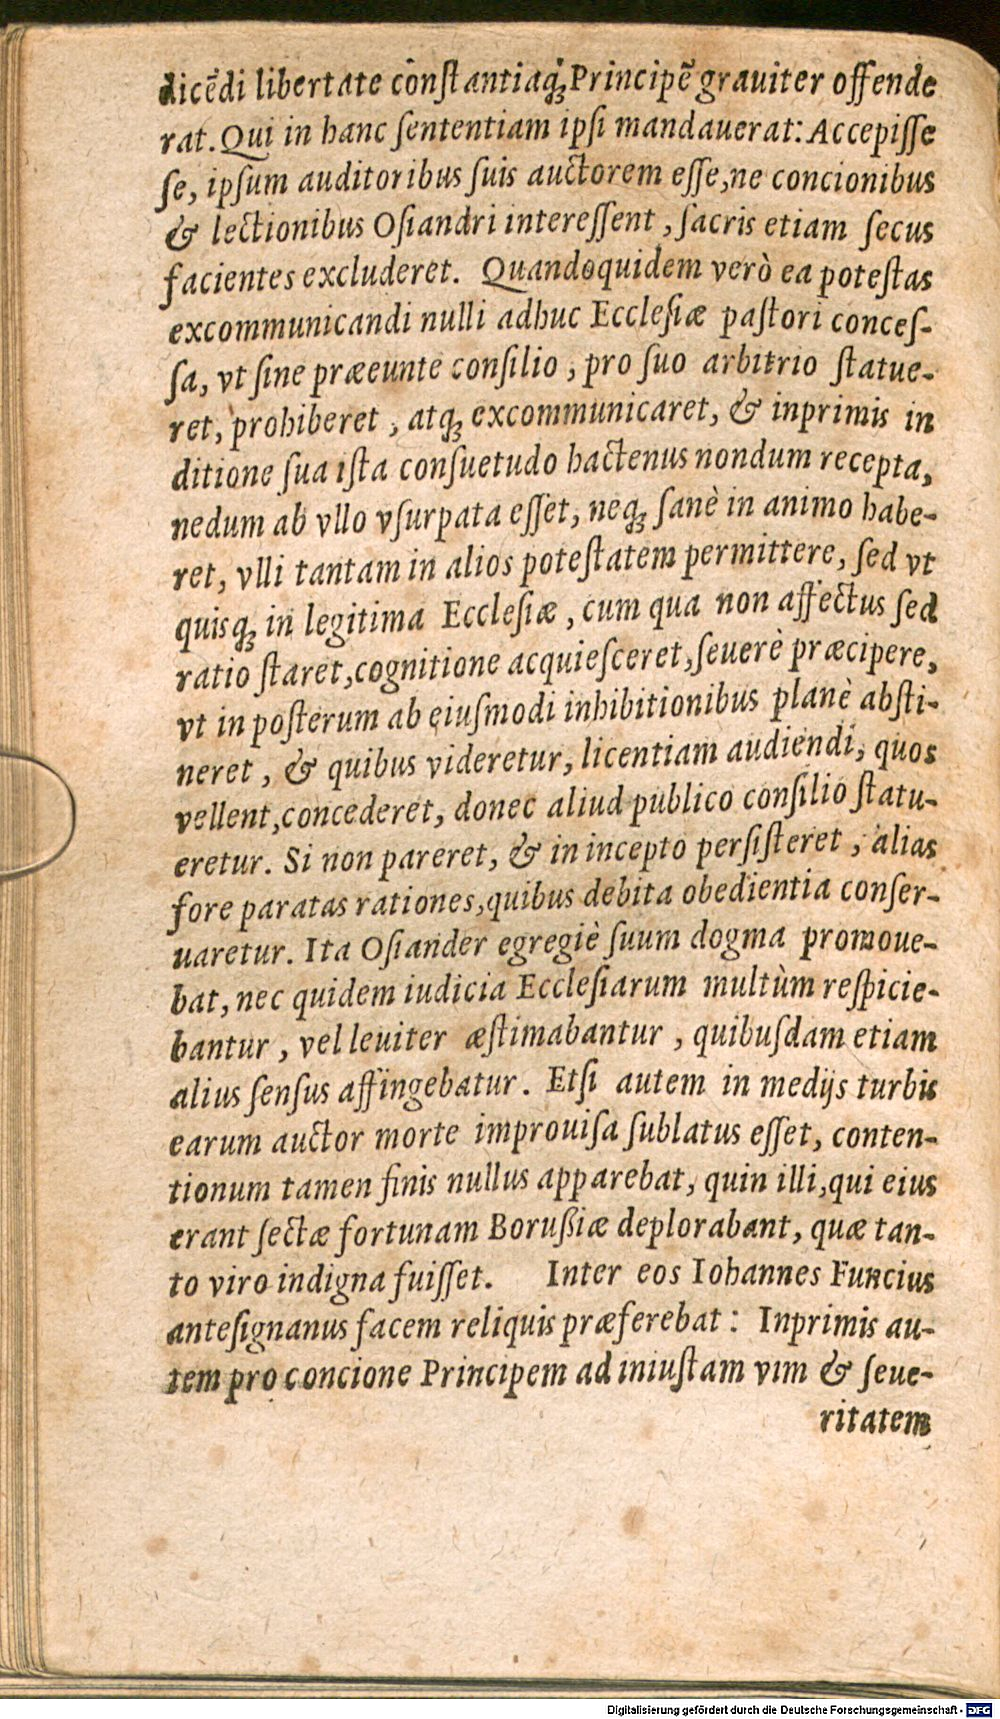 dicẽdi libertate cõnſtantiaq́ꝫ Principẽ grauiter offende
rat. Qui in hanc ſententiam ipſi mandauerat: Accepiſſe
ſe, ipſum auditoribus ſuis auctorem eſſe, ne concionibus
& lectionibus Oſiandri intereſſent, ſacris etiam ſecus
facientes excluderet. Quandoquidem verò ea poteſtas
excommunicandi nulli adhuc Eccleſiæ paſtori conceſ-
ſa, vt ſine præeunte conſilio, pro ſuo arbitrio ſtatue-
ret, prohiberet, atqꝫ excommunicaret, & inprimis in
ditione ſua iſta conſuetudo hactenus nondum recepta,
nedum ab vllo vſurpata eſſet, neqꝫ ſanè in animo habe-
ret, vlli tantam in alios poteſtatem permittere, ſed vt
quisqꝫ in legitima Eccleſiæ, cum qua non affectus ſed
ratio ſtaret, cognitione acquieſceret, ſeuerè præcipere,
vt in poſterum ab eiuſmodi inhibitionibus planè abſti-
neret, & quibus videretur, licentiam audiendi, quos
vellent, concederet, donec aliud publico conſilio ſtatu-
eretur. Si non pareret, & in incepto perſiſteret, alias
fore paratas rationes, quibus debita obedientia conſer-
uaretur. Ita Oſiander egregiè ſuum dogma promoue-
bat, nec quidem iudicia Eccleſiarum multùm reſpicie-
bantur, vel leuiter æſtimabantur, quibuſdam etiam
alius ſenſus affingebatur. Etſi autem in medijs turbis
earum auctor morte improuiſa ſublatus eſſet, conten-
tionum tamen finis nullus apparebat, quin illi, qui eius
erant ſectæ fortunam Borußiæ deplorabant, quæ tan-
to viro indigna fuiſſet. Inter eos Iohannes Funcius
anteſignanus facem reliquis præferebat: Inprimis au-
tem pro concione Principem ad iniuſtam vim & ſeue-
ritatem
Digitalisierung gefördert durch die Deutsche Forschungsgemeinschaft - DFG